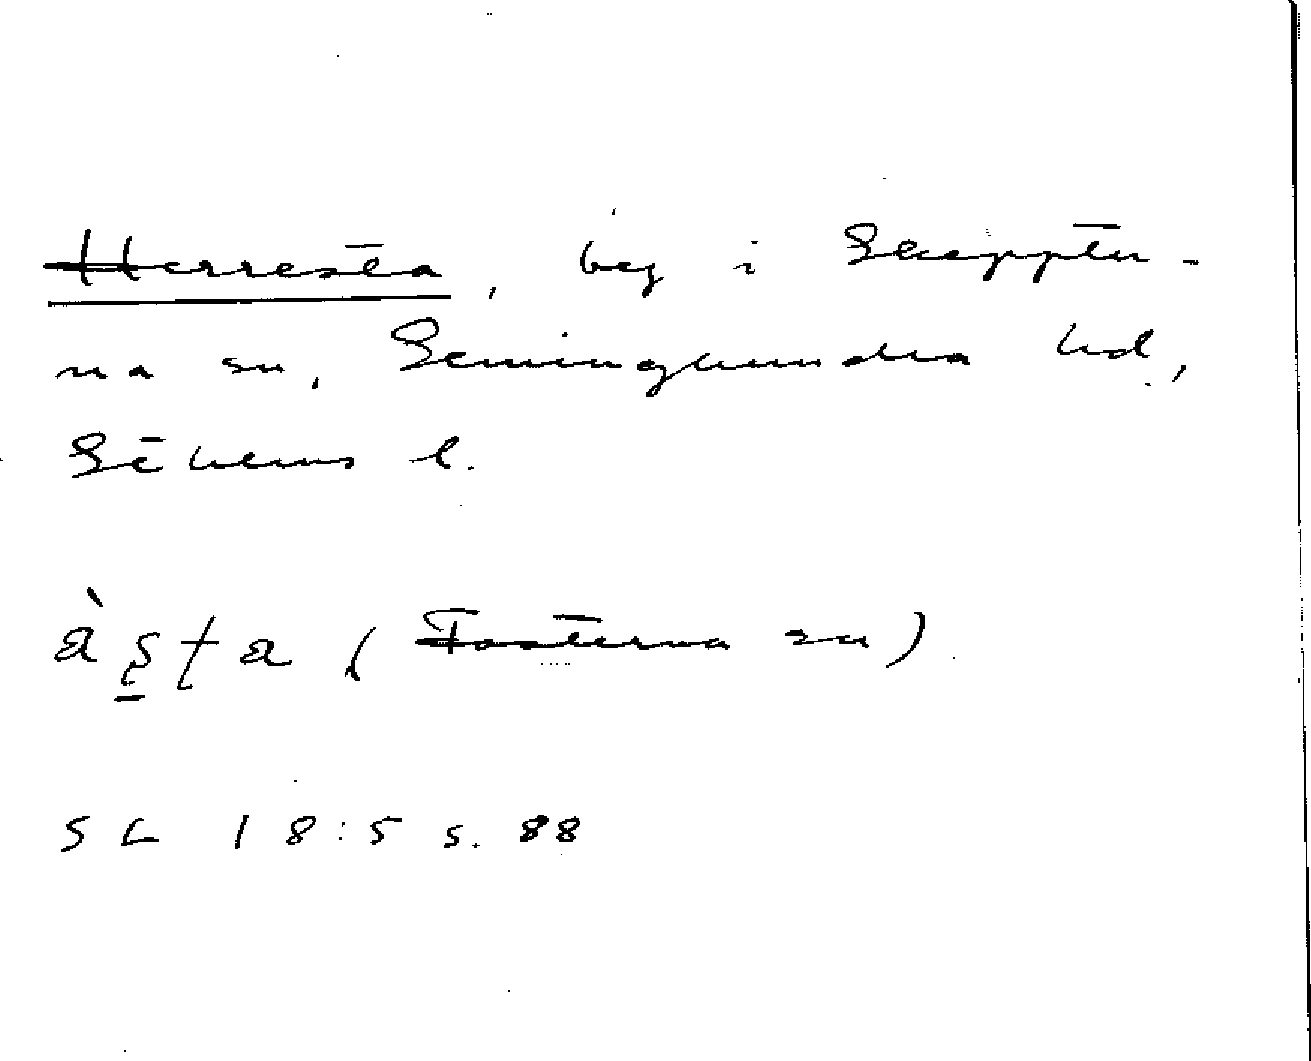 Herresta, by i Skepptu-
na sn, Seminghundra hd,
Sthlms l.
à ʂ ʈ a (Fasterna sn)
SL 18:5 s. 88